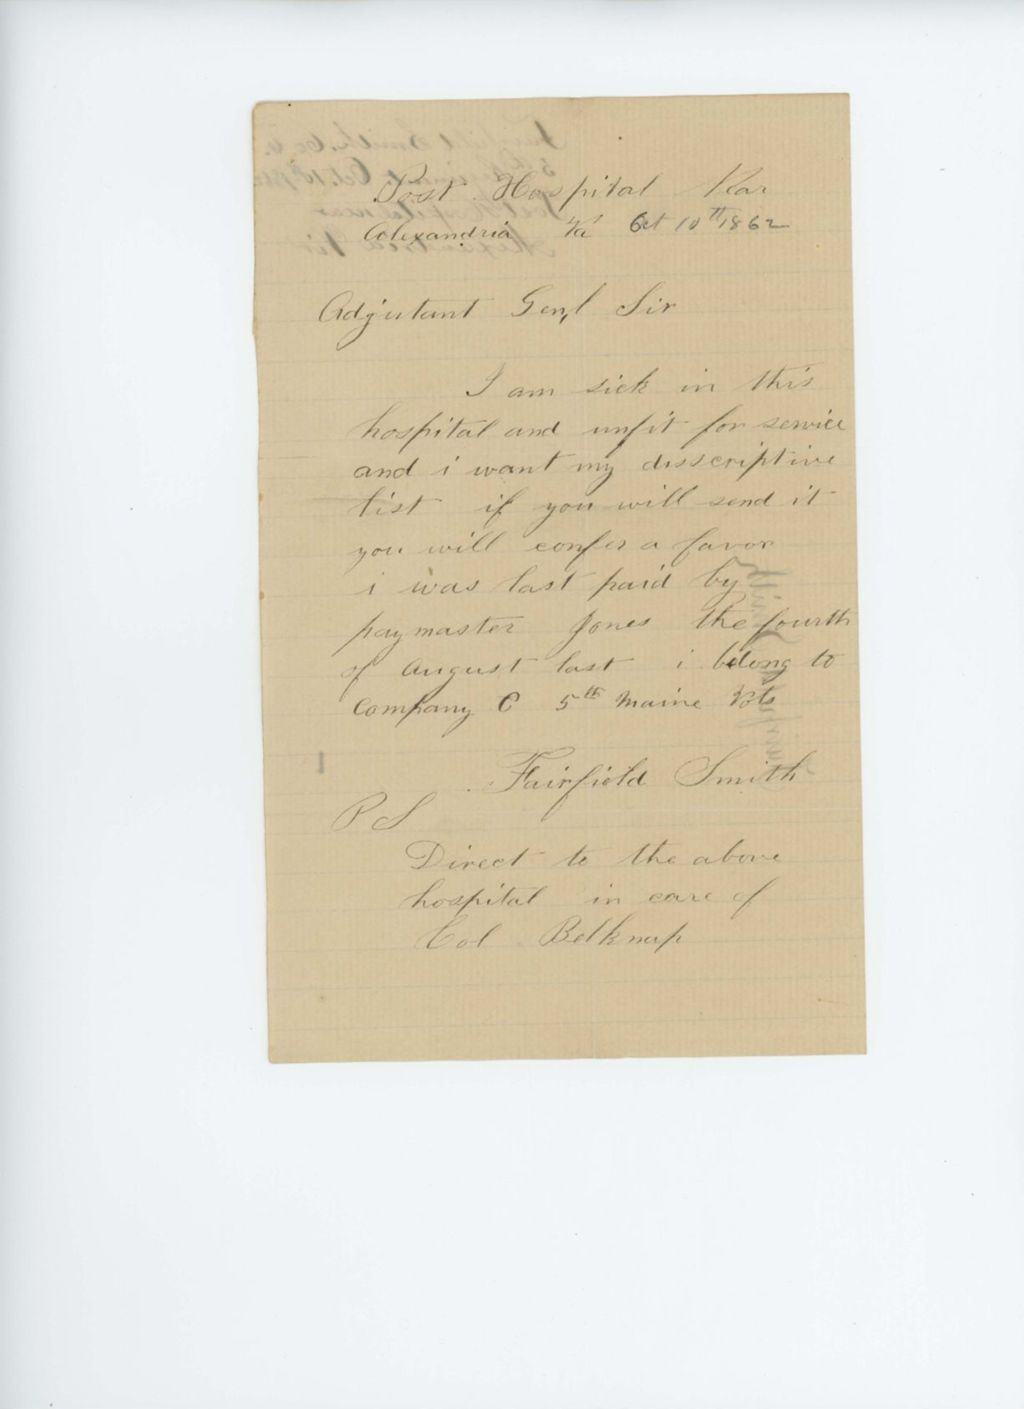 Post Hospital Near
Alexandria Va Oct 10th 1862
Adjutant Genl Sir
I am sick in this
hospital and unfit for service
and i want my disscriptive
list if you will send it
you will confer a favor
i was last paid by
paymaster Jones the fourth
of August last i belong to
Company C 5th Maine Vols
Fairfield Smith
P S
Direct to the above
hospital in care of
Col Belknap